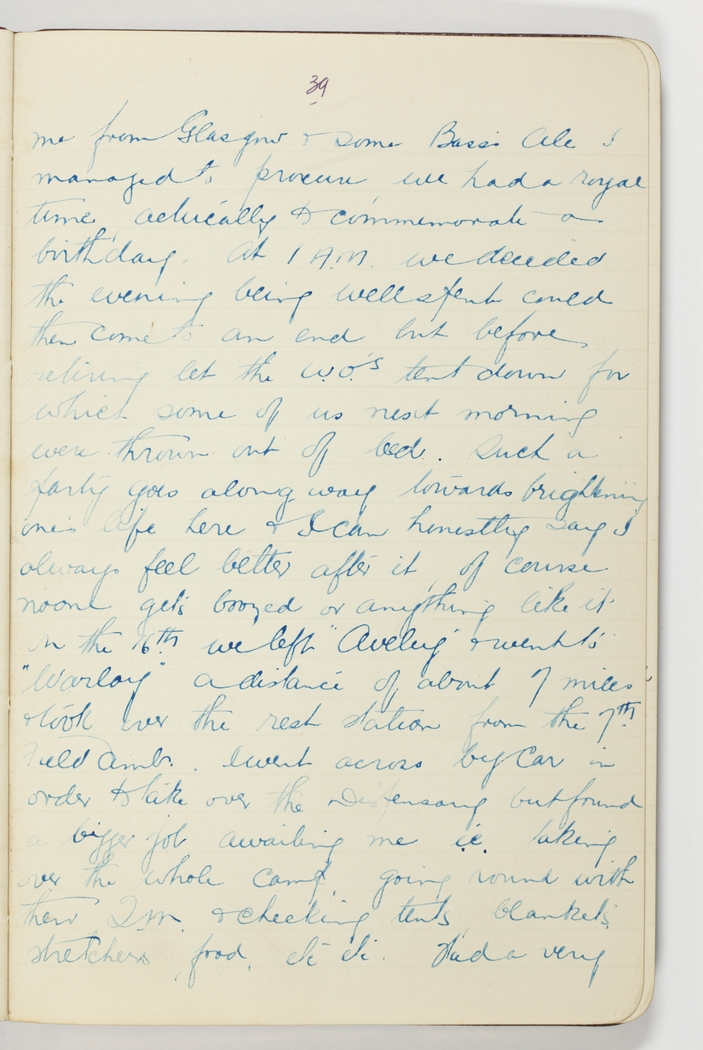 39
me from Glasgow & some Bass's Ale I
managed to procure we had a royal
time, actually to commemorate a
birthday. At 1 A.M. we decided
the evening being well spent could
then come to an end but before
retiring let the W.O's tent down for
which some of us next morning
were thrown out of bed. Such a
party goes along way towards brightening
one's life here & I can honestly say I
always feel better after it, of course
noone gets boozed or anything like it
on the 16th we left "Aveluy" & went to
"Warloy" a distance of about 7 miles
& took over the rest station from the 7th
Field Amb. I went across by Car in
order to take over the Dispensary but found
a bigger job awaiting me ie. taking
over the whole camp, going round with
their Q.M. & checking tents, blankets,
stretchers, food, etc etc. Had a very